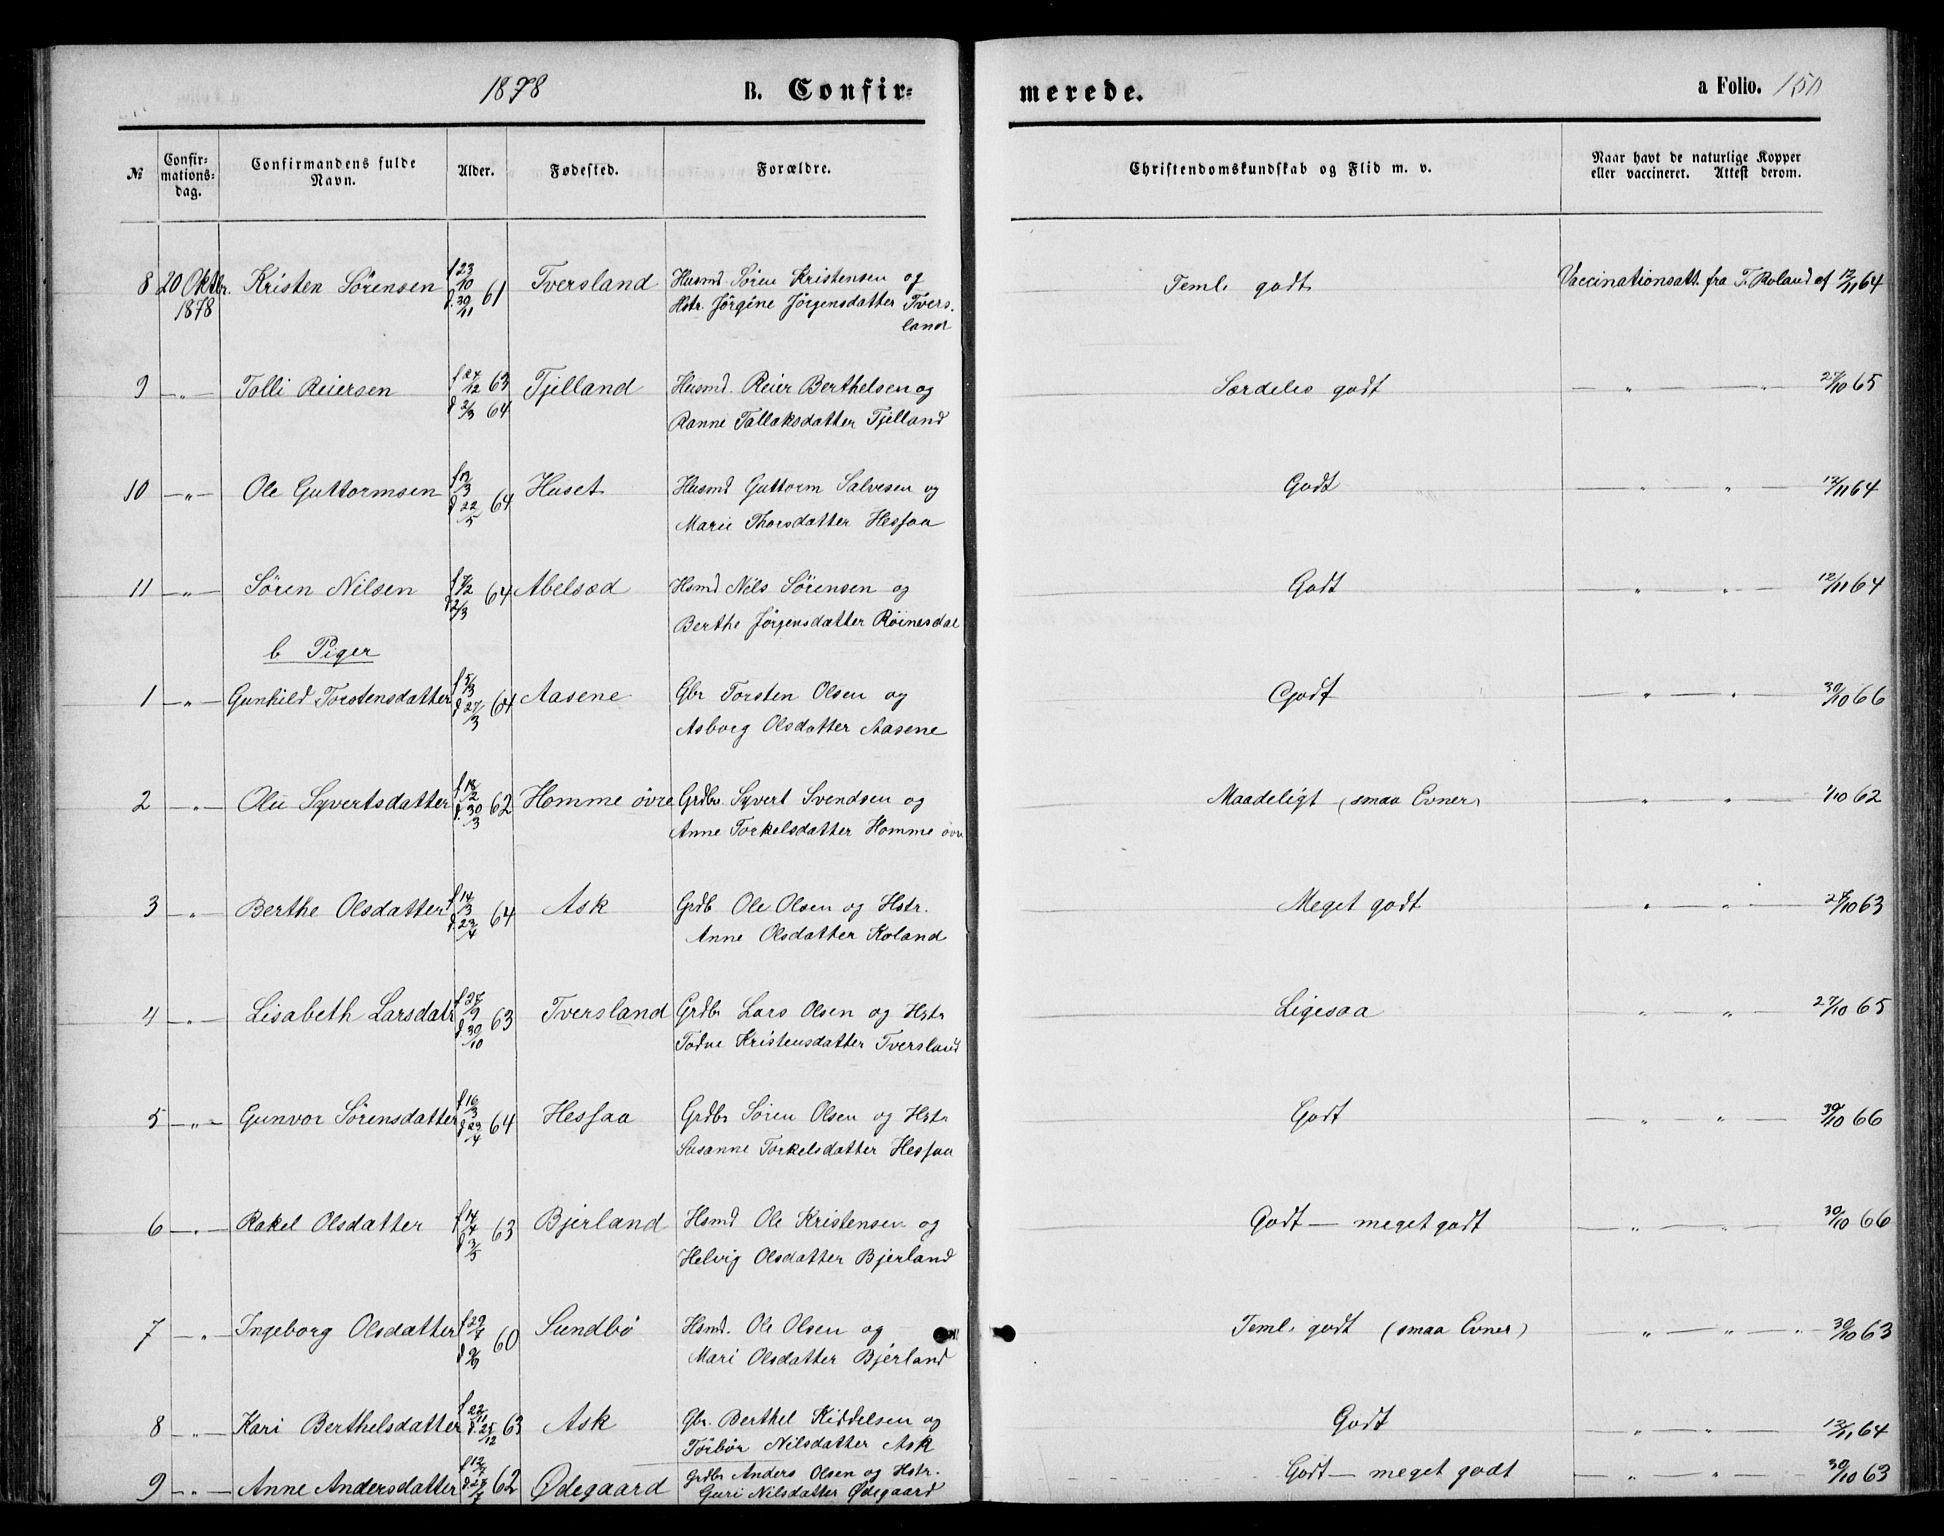 1878 B. Confirmerede. a Folio. 150
№ Confirmationsdag. Confirmandens fulde Navn. Alder. Fødested. Forældre. Christendomskundskab og Flid m. v. Naar havt de naturlige Kopper eller vaccineret. Attest derom.
8 20 Oktbr. 1878 Kristen Sörensen f 23/10 d. 30/11 61 Tversland Husmd Sören Kristensen og Teml. godt Vaccinationsatt. fra T. Roland af 12/11 64
Hstr. Jörgine Jörgensdatter Tversland
9 —„— Tolli Reiersen f 27/12 63 d 2/3 64 Tjelland Husmd. Reier Berthelsen og Særdeles godt — „ — „ 27/10 65
Ranne Tallaksdatter Tjelland
10 —„— Ole Guttormsen f 12/3 d 22/5 64 Huset Husmd Guttorm Salvesen og Godt „ — „ — 12/11 64
Marie Thorsdatter Hesfaa
11 —„— Sören Nilsen f 7/2 d 2/3 64 Abelsæd Hsmd Nils Sörensen og Godt — „ — „ — 12/11 64
Berthe Jörgensdatter Röinesdal
b Piger
1 —„— Gunhild Torstensdatter f 5/3 d 27/3 64 Aasene Gbr Torsten Olsen og Godt „ — „ — 30/10 66
Asborg Olsdatter Aasene
2 —„— Olu Syvertsdatter f 18/2 d. 30/3 62 Homme övre Grdbr Syvert Svendsen og Maadeligt (smaa Evner) — „ — „ — 1/10 62
Anne Torkelsdatter Homme övre
3 —„— Berthe Olsdatter f 14/3 d. 23/4 64 Ask Grdb Ole Olsen og Hstr. Meget godt „ — „ — 27/10 63
Anne Olsdatter Koland
4 —„— Lisabeth Larsdatr f 27/9 d 30/10 63 Tversland Grdbr Lars Olsen og Hstr Ligesaa „ — „ — 27/10 65
Todne Kristensdatter Tversland
5 —„— Gunvor Sörensdatter f 16/3 d 23/4 64 Hesfaa Grdbr Sören Olsen og Hstr Godt „ — „ — 30/10 66
Susanne Torkelsdatter Hesfaa
6 —„— Rakel Olsdatter f 14/4 d 3/5 63 Bjerland Hsmd Ole Kristensen og Godt — meget godt „ — „ — 30/10 66
Helvig Olsdatter Bjerland
7 —„ Ingeborg Olsdatter f 29/4 60 Sundbö Hsmd. Ole Olsen og Teml. godt (smaa Evner) — „ — „ — „ 30/10 63
Mari Olsdatter Bjerland
8 —„— Kari Berthelsdatter f 22/11 d. 25/12 63 Ask Gbr. Berthel Kiddelsen og Godt „ — „ — 12/11 64
Törbör Nilsdatter Ask
9 —„— Anne Andersdatter f 12/7 d 27/7 62 Ødegaard Grdbr Anders Olsen og Hstr. Godt — meget godt — „ — „ — 30/10 63
Guri Nilsdatter Ødegaard